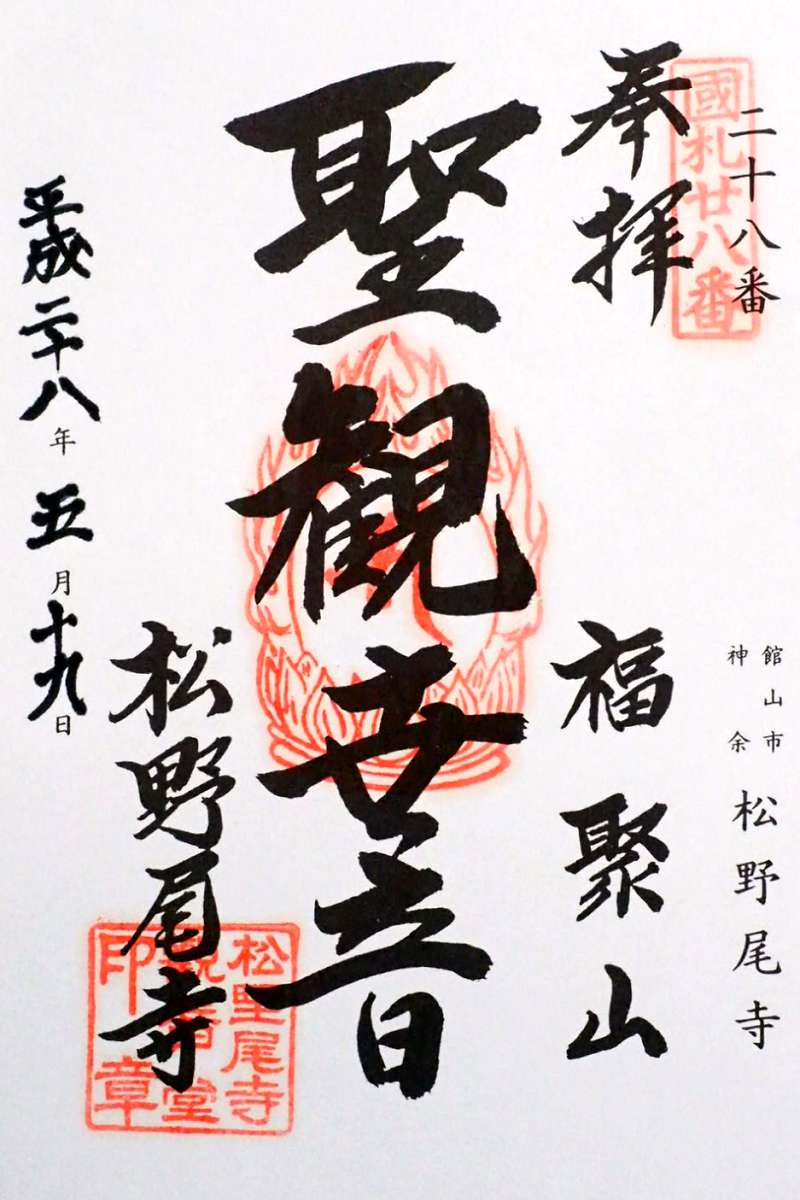 二十八番
國札廿八番
館山市
神余
松野尾寺
奉拝
福聚山
聖観世音
松野尾寺
平成二十八年五月十九日
松野尾寺
観音堂
印章